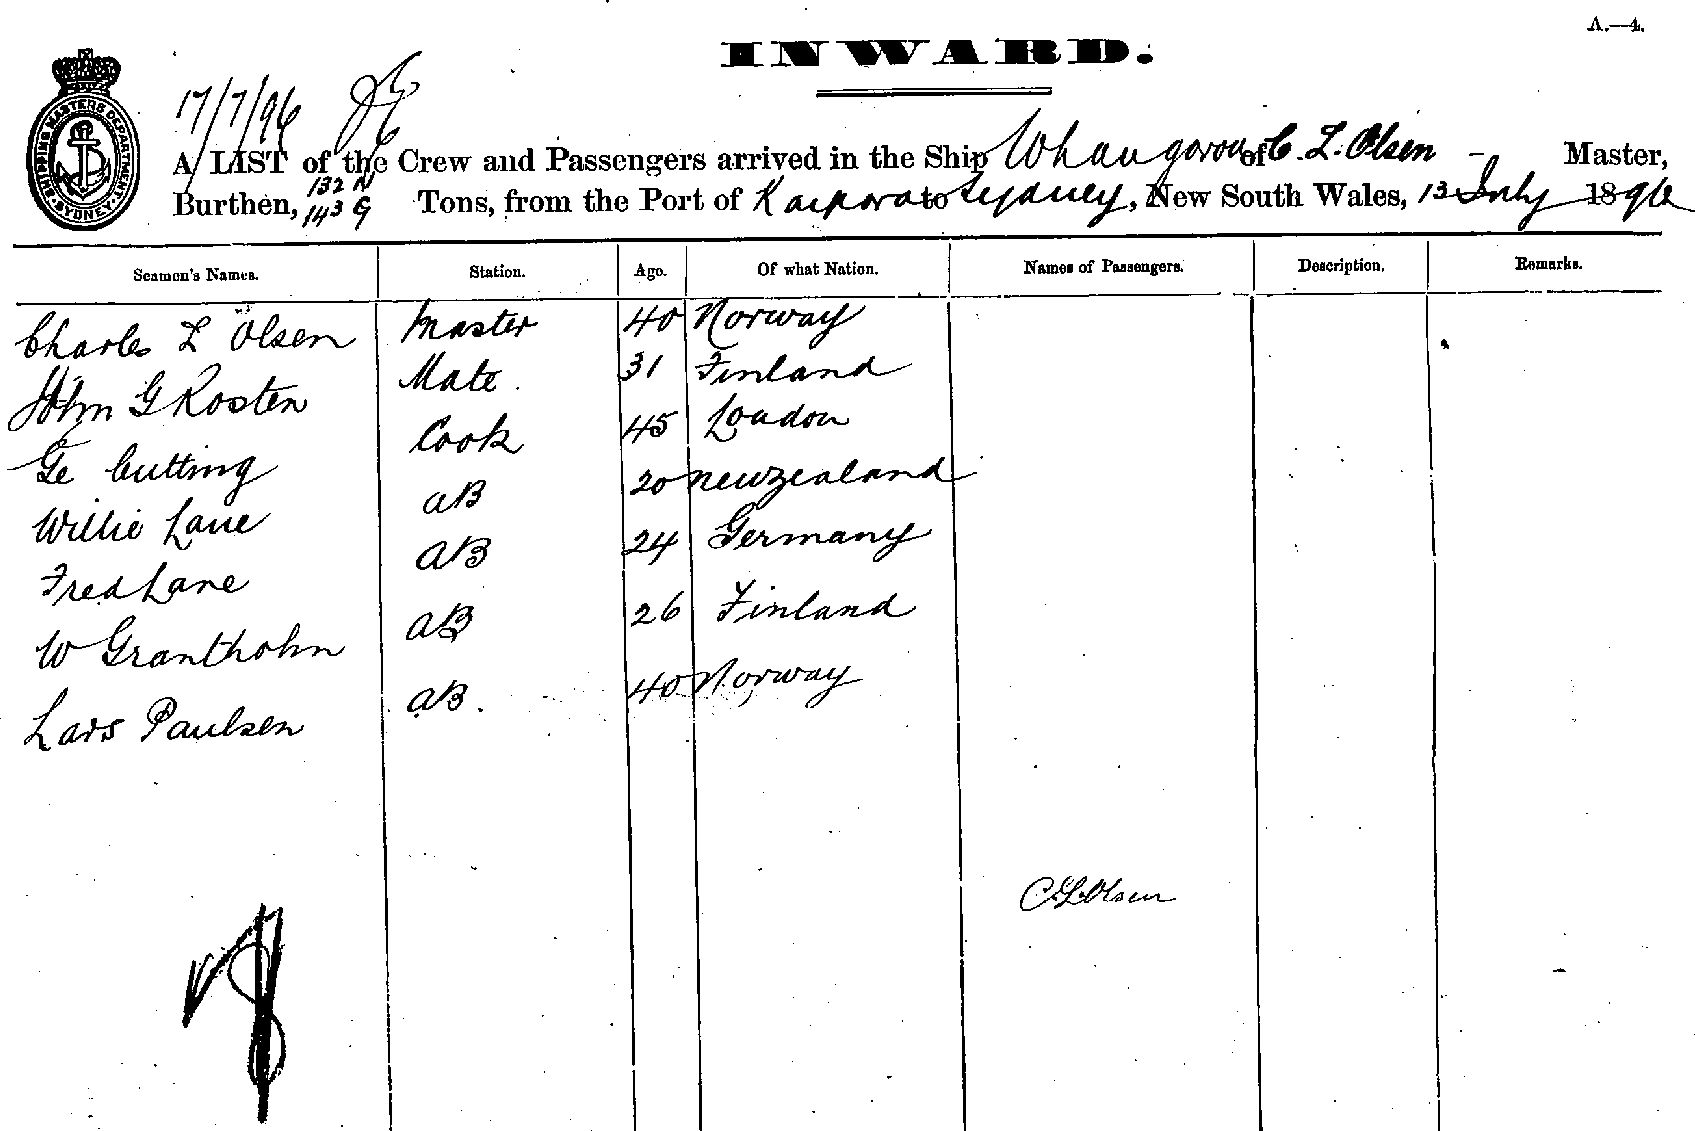 A.—4.
INWARD.
17/7/96
SHIPPING MASTERS DEPARTMENT SYDNEY
A LIST of the Crew and Passengers arrived in the Ship Whangaroa of C. L. Olsen - Master,
Burthen, 132 N 143 G Tons, from the Port of Kaipara to Sydney, New South Wales, 13 July 1896
Seamen's Names. Station. Age. Of what Nation. Names of Passengers. Description. Remarks.
Charles L Olsen Master 40 Norway
John G Rosten Mate 31 Finland
Ge Cutting Cook 45 London
Willie Lane AB 20 newzealand
Fred Lane AB 24 Germany
W Granthohn AB 26 Finland
Lars Paulsen AB. 40 Norway
C. L. Olsen